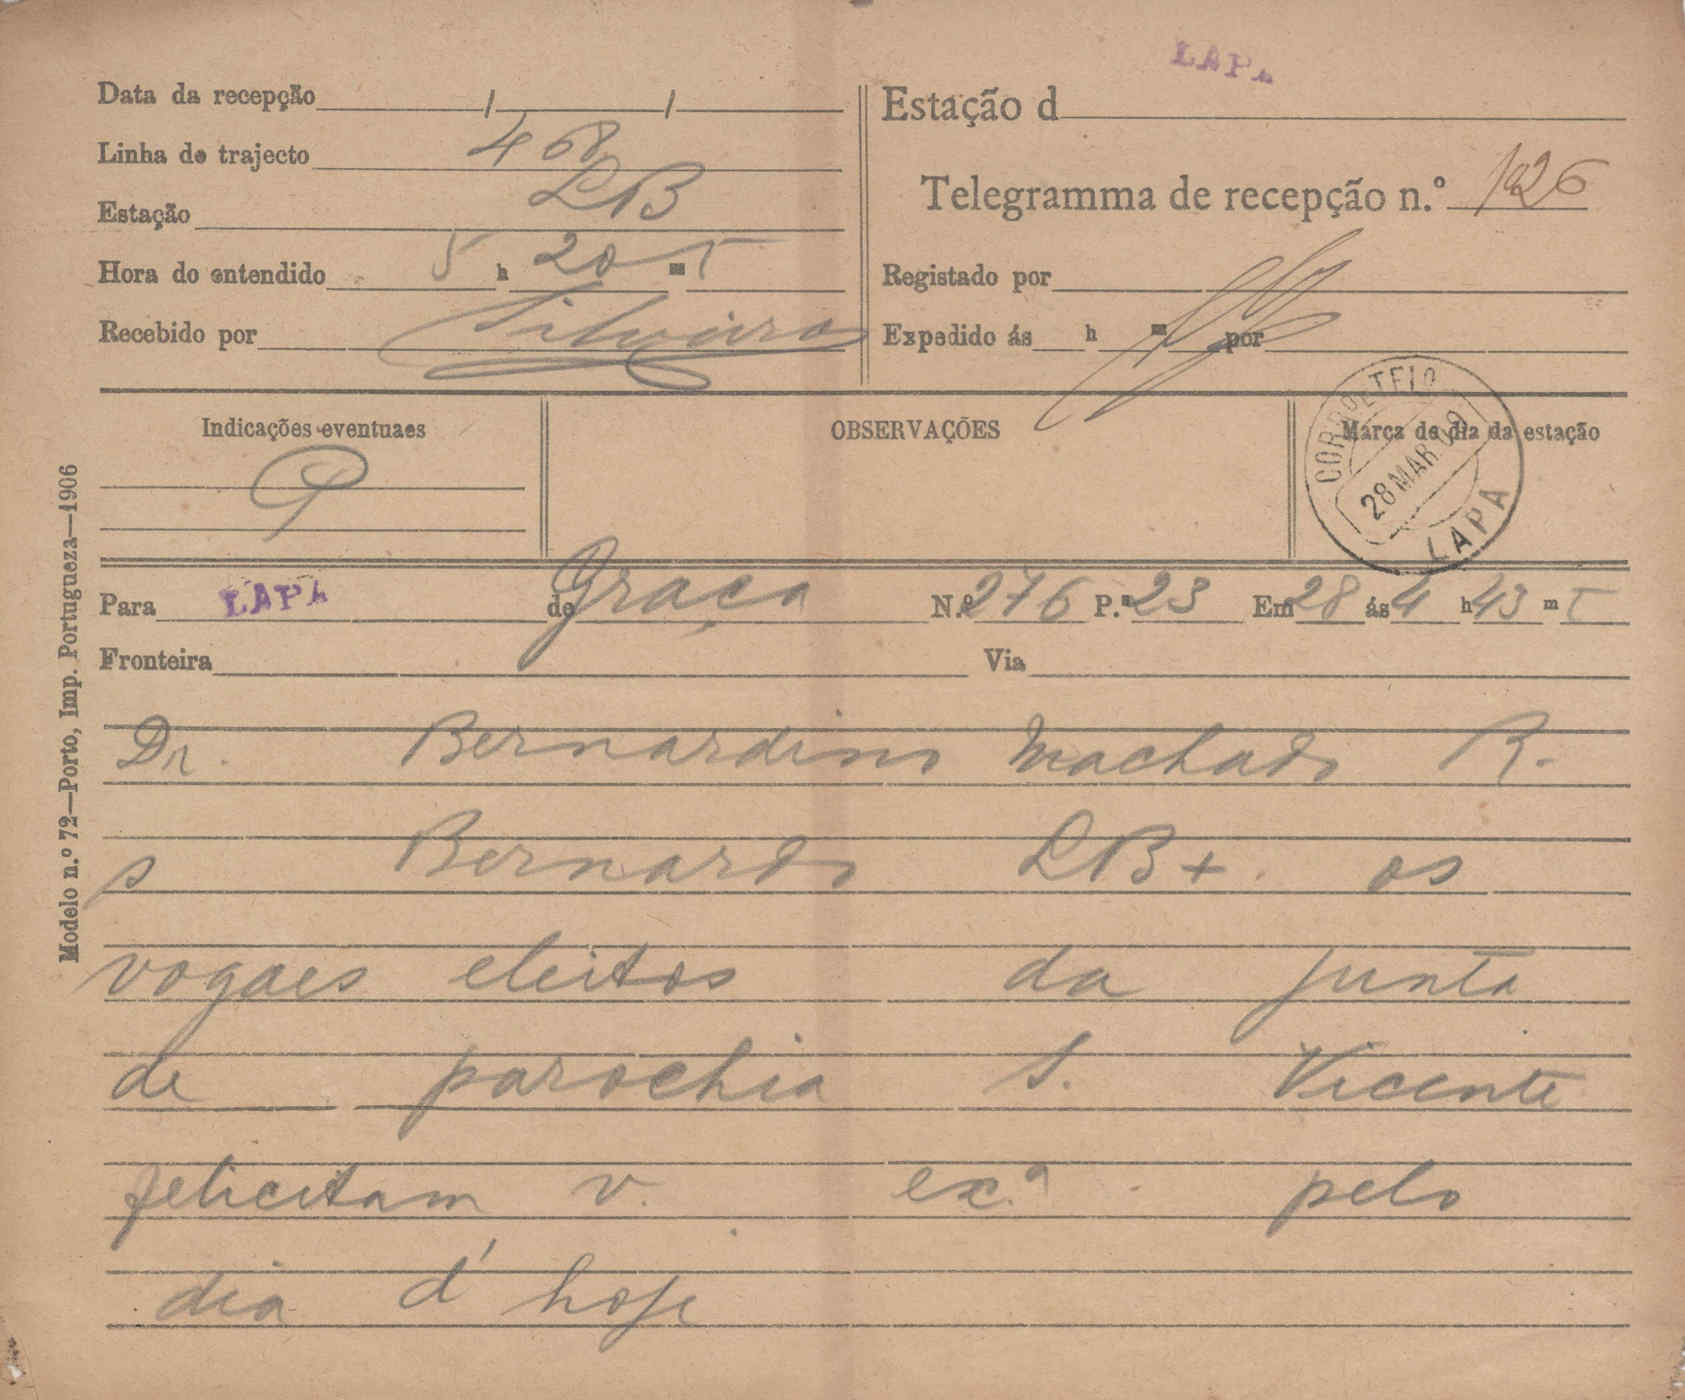 LAPA
Data da recepção / /
Linha de trajecto 468
Estação LB
Hora do entendido 5 h 20 m T
Recebido por Silveira
Estação d
Telegramma de recepção n.º 126
Registado por
Expedido ás h m por
Indicações eventuaes
OBSERVAÇÕES
Marca de dia da estação
CORREO E TELO
28 MAR. 09
LAPA
Para LAPA de Graça N.º 276 P.as 23 Em 28 ás 4 h 43 m T
Fronteira Via
Dr. Bernardino Machado R.
s Bernardo LB+. os
vogaes eleitos da junta
de parochia S. Vicente
felicitam v. ex.ª pelo
dia d'hoje
Modelo n.º 72—Porto, Imp. Portugueza—1906